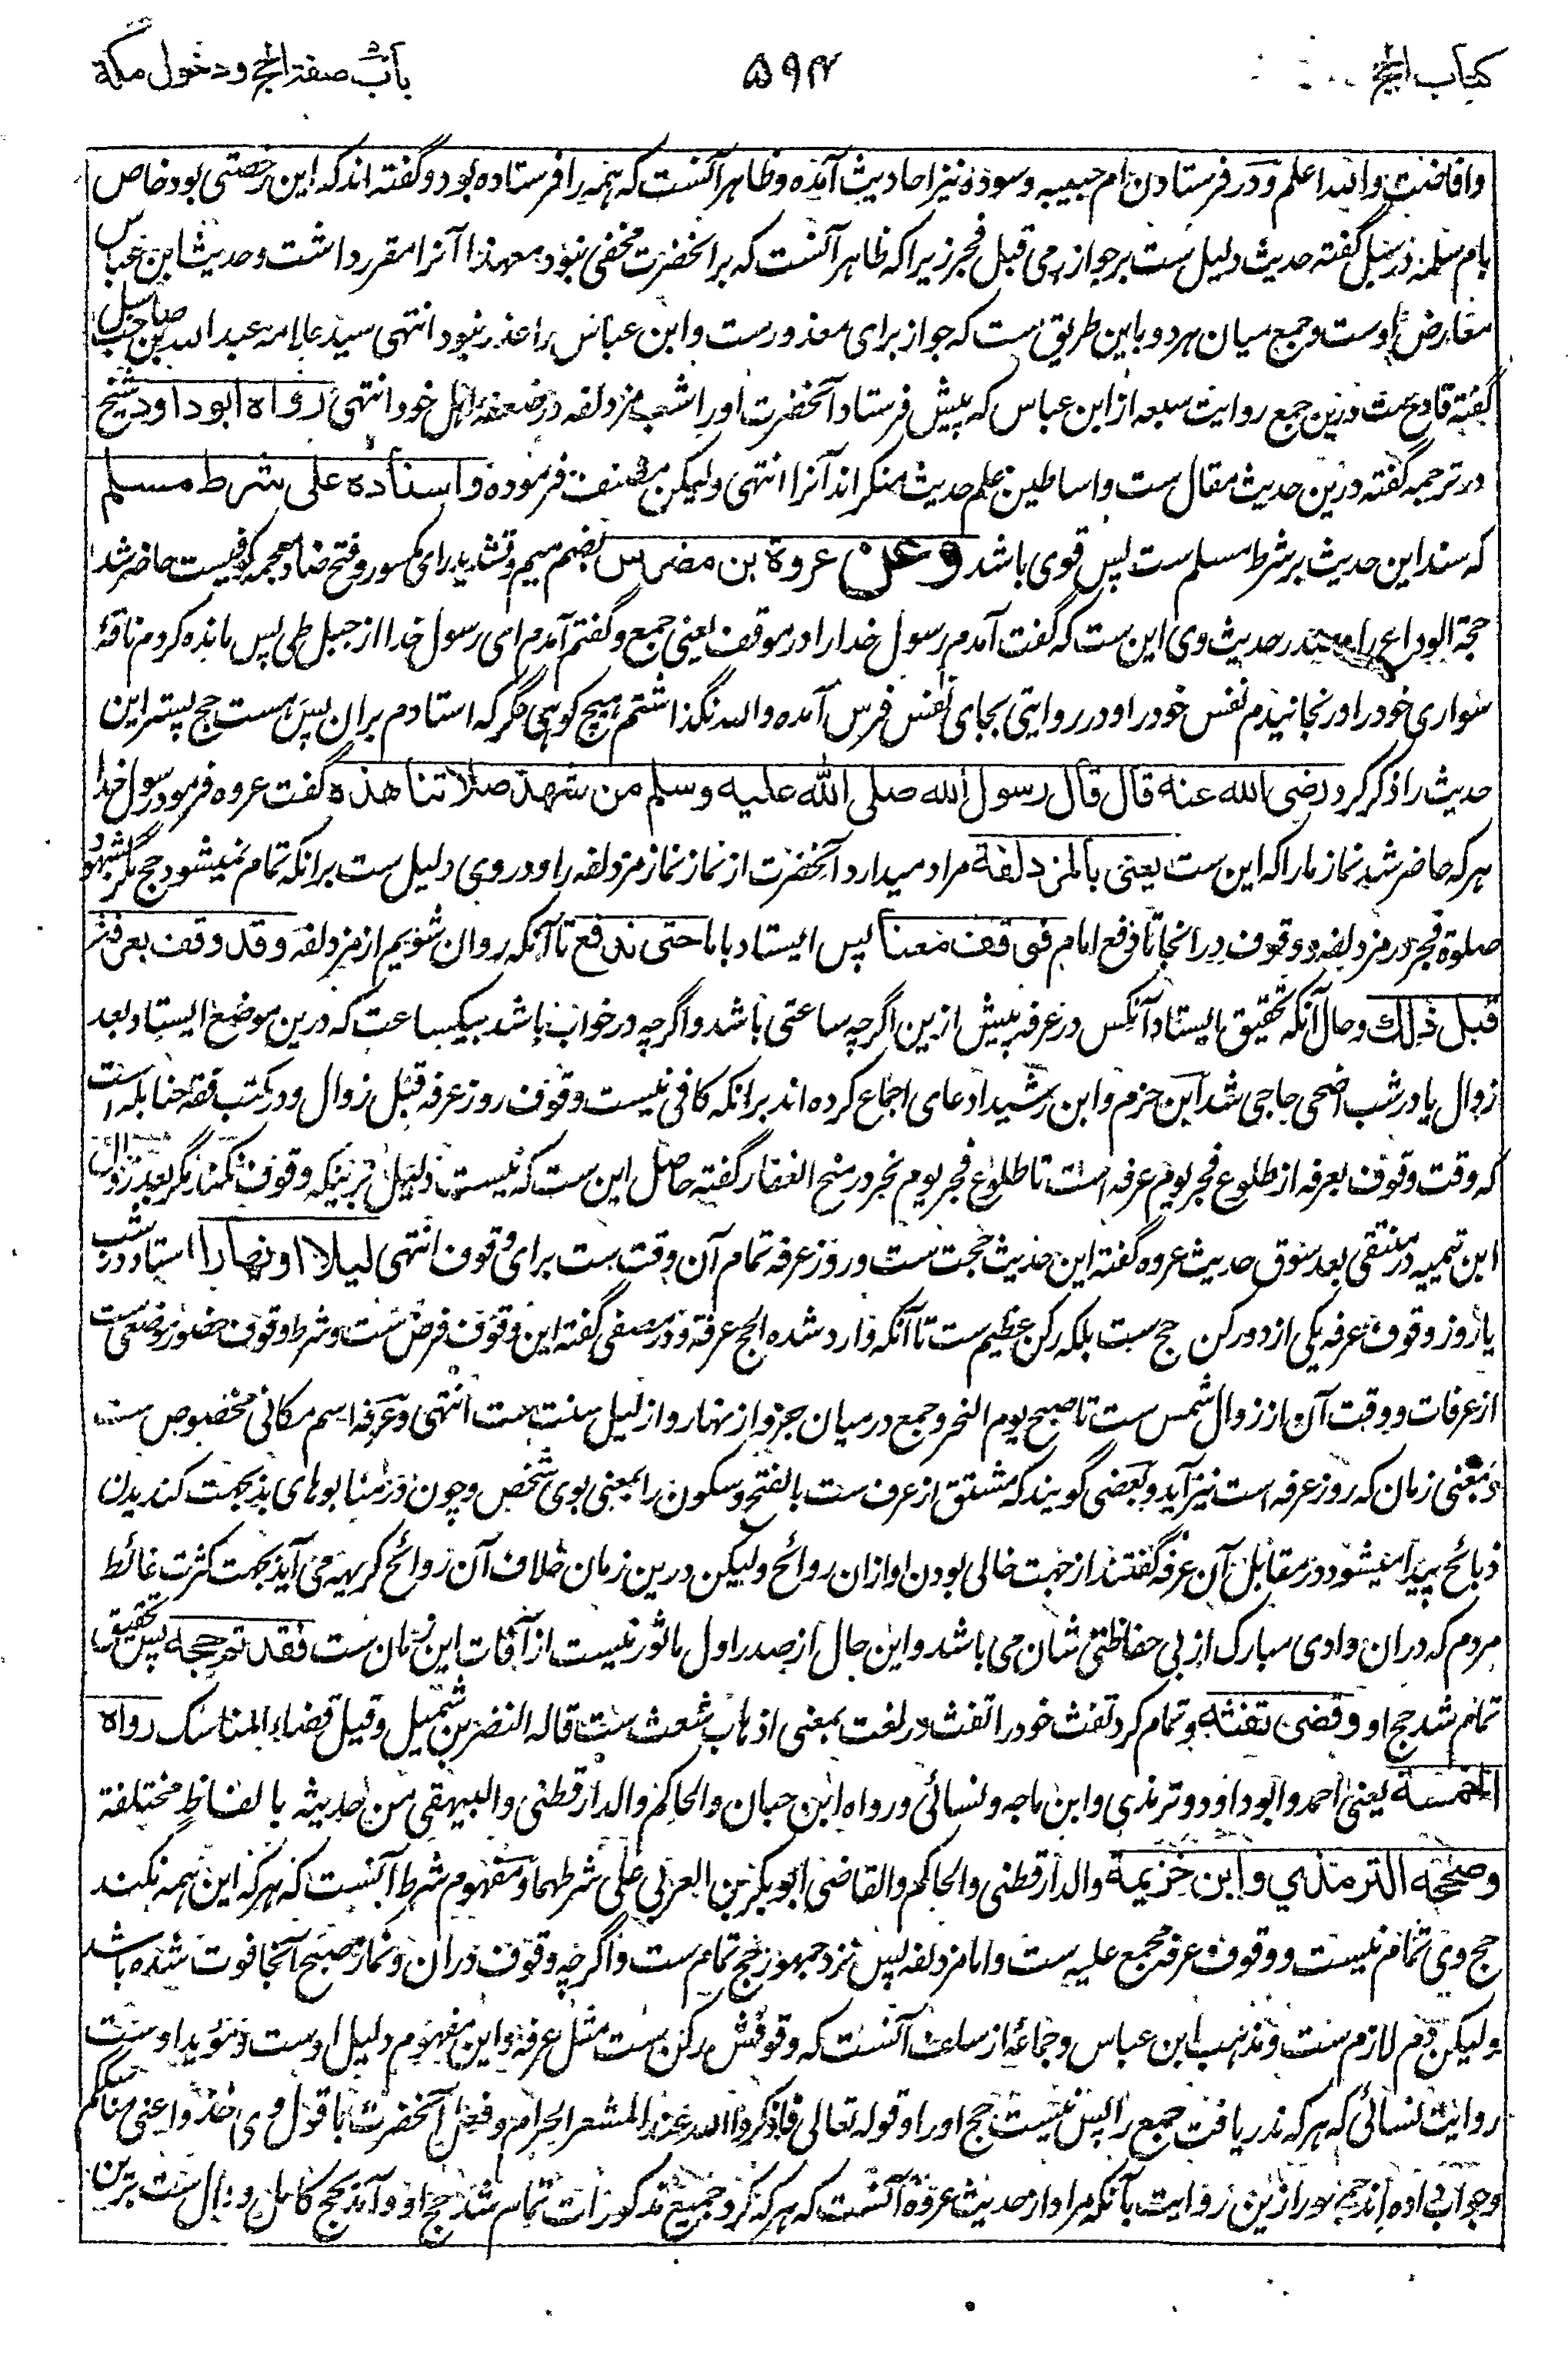 کتاب الحج ۵۹۴ باب صفة الحج ودخول مکة
وافاضت والله اعلم ودر فرستادن ام حبیبه وسوده نیز احادیث آمده وظاهر آنست که همه را فرستاده بود وگفته اند که این رخصتی بود خاص
بام سلمه در سبل گفته حدیث دلیل ست بر جواز رمی قبل فجر زیرا که ظاهر آنست که بر انحضرت مخفی نبود معهذا آنرا مقرر داشت وحدیث ابن عباس
معارض اوست وجمع میان هر دو باین طریق ست که جواز برای معذورست وابن عباس را عذر نبود انتهی سید علامه عبد الله بن صاحب سبل
گفته قادح ست درین جمع روایت سبعه از ابن عباس که پیش فرستاد آنحضرت او را شب مزدلفه در ضعفه اهل خود انتهی رواه ابو داود شیخ
در ترجمه گفته درین حدیث مقال ست واساطین علم حدیث منکر اند آنرا انتهی ولیکن مصنف فرموده واسناده علی شرط مسلم
که سند این حدیث بر شرط مسلم ست پس قوی باشد وعن عروة بن مضرس بضم میم وتشدید رای مکسور وفتح ضاد معجمه کوفیست حاضر شد
حجة الوداع را در حدیث وی این ست که گفت آمدم رسول خدا را در موقف یعنی جمع وگفتم آمدم ای رسول خدا از جبل طی پس مانده کردم ناقهٔ
سواری خود را ورنجانیدم نفس خود را ودر روایتی بجای نفس فرس آمده والله نگذاشتم هیچ کوهی مگر که استادم بران پس هست حج پستر این
حدیث را ذکر کرد رضی الله عنه قال قال رسول الله صلی الله علیه وسلم من شهد صلاتنا هذه گفت عروه فرمود رسول خدا
هر که حاضر شد نماز ما را که این ست یعنی بالمزدلفة مراد میدارد آنحضرت از نماز نماز مزدلفه را ودر وی دلیل ست برانکه تمام نمیشود حج مگر بشهود
صلوة فجر در مزدلفه ووقوف در انجا تا دفع امام فوقف معنا پس ایستاد با ما حتی ندفع تا آنکه روان شویم از مزدلفه وقد وقف بعرفة
قبل ذلك وحال آنکه تحقیق ایستاد آنکس در عرفه پیش ازین اگرچه ساعتی باشد واگرچه در خواب باشد بیکساعت که درین موضع ایستاد بعد
زوال یا در شب اضحی حاجی شد ابن حزم وابن رشید ادعای اجماع کرده اند برانکه کافی نیست وقوف روز عرفه قبل زوال ودر کتب فقه حنابله است
که وقت وقوف بعرفه از طلوع فجر یوم عرفه است تا طلوع فجر یوم نحر در منح الغفار گفته حاصل این ست که نیست دلیل برینکه وقوف نکند مگر بعد زوال
ابن تیمیه در منتقی بعد سوق حدیث عروه گفته این حدیث حجت ست وروز عرفه تمام آن وقت ست برای وقوف انتهی لیلا او نهارا استاد در شب
یا روز وقوف عرفه یکی از دو رکن حج ست بلکه رکن عظیم ست تا آنکه وارد شده الحج عرفة ودر مصفی گفته این وقوف فرض ست وشرط وقوف حضور موضعی ست
از عرفات ووقت آن از زوال شمس ست تا صبح یوم النحر وجمع در میان جزو از نهار واز لیل سنت ست انتهی وعرفه اسم مکانی مخصوص ست
وبمعنی زمان که روز عرفه است نیز آید وبعضی گویند که مشتق از عرف ست بالفتح وسکون را بمعنی بوی شخص وچون در منا بوهای بد بجهت گندیدن
ذبائح پیدا میشود در مقابل آن عرفه گفتند از جهت خالی بودن او ازان روائح ولیکن درین زمان خلاف آن روائح کریهه می آید بجهت کثرت غائط
مردم که دران وادی مبارک از بی حفاظتی شان می باشد واین حال از صدر اول ماثور نیست از آفات این زمان ست فقد تم حجه پس تحقیق
تمام شد حج او وقضی تفثه وتمام کرد تفث خود را تفث در لغت بمعنی اذهاب شعث ست قاله النضر بن شمیل وقیل قضاء المناسک رواه
الخمسة یعنی احمد وابو داود وترمذی وابن ماجه ونسائی ورواه ابن حبان والحاکم والدارقطنی والبیهقی من حدیثه بالفاظ مختلفة
وصححه الترمذي وابن خزیمة والدارقطنی والحاکم والقاضی ابو بکر بن العربی علی شرطهما ومفهوم شرط آنست که هر که این همه نکند
حج وی تمام نیست ووقوف عرفه مجمع علیه ست واما مزدلفه پس نزد جمهور حج تمام ست واگرچه وقوف دران ونماز صبح آنجا فوت شده باشد
ولیکن دم لازم ست ومذهب ابن عباس وجماعهٔ از سلف آنست که وقوفش رکن ست مثل عرفه واین مفهوم دلیل اوست ومؤید اوست
روایت نسائی که هر که ندریافت جمع را پس نیست حج او را وقوله تعالی فاذکروا الله عند المشعر الحرام وفعل آنحضرت با قول وی خذوا عنی مناسککم
وجواب داده اند جمهور ازین روایت بآنکه مراد از حدیث عروه آنست که هر که کرد جمیع مذکورات تمام شد حج او وآمد بحج کامل ودال ست برین